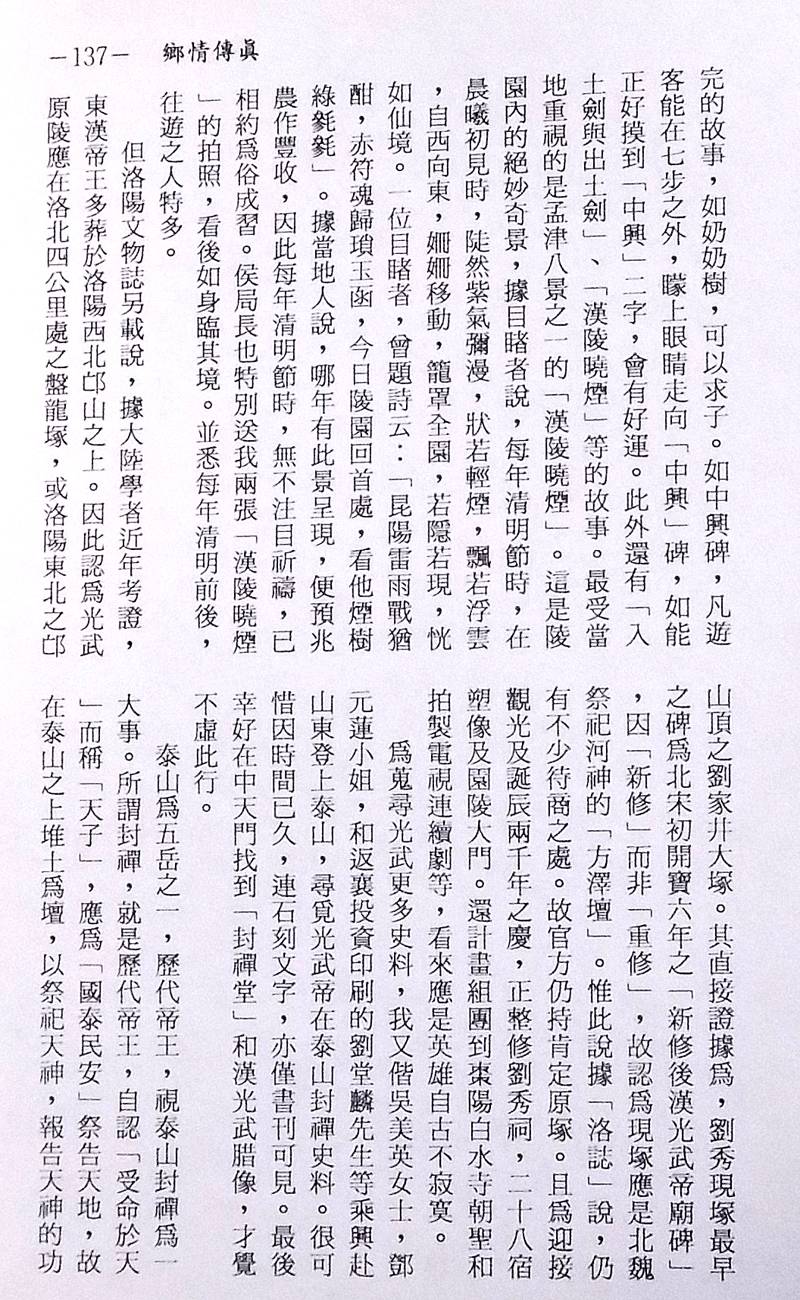 鄉情傳眞
－137－
完的故事，如奶奶樹，可以求子。如中興碑，凡遊
客能在七步之外，矇上眼睛走向「中興」碑，如能
正好摸到「中興」二字，會有好運。此外還有「入
土劍與出土劍」、「漢陵曉煙」等的故事。最受當
地重視的是孟津八景之一的「漢陵曉煙」。這是陵
園內的絕妙奇景，據目睹者說，每年清明節時，在
晨曦初見時，陡然紫氣彌漫，狀若輕煙，飄若浮雲
，自西向東，姍姍移動，籠罩全園，若隱若現，恍
如仙境。一位目睹者，曾題詩云：「昆陽雷雨戰猶
酣，赤符魂歸瑣玉函，今日陵園回首處，看他煙樹
綠毿毿」。據當地人說，哪年有此景呈現，便預兆
農作豐收，因此每年清明節時，無不注目祈禱，已
相約爲俗成習。侯局長也特別送我兩張「漢陵曉煙
」的拍照，看後如身臨其境。並悉每年清明前後，
往遊之人特多。
但洛陽文物誌另載說，據大陸學者近年考證，
東漢帝王多葬於洛陽西北邙山之上。因此認爲光武
原陵應在洛北四公里處之盤龍塚，或洛陽東北之邙
山頂之劉家井大塚。其直接證據爲，劉秀現塚最早
之碑爲北宋初開寶六年之「新修後漢光武帝廟碑」
，因「新修」而非「重修」，故認爲現塚應是北魏
祭祀河神的「方澤壇」。惟此說據「洛誌」說，仍
有不少待商之處。故官方仍持肯定原塚。且爲迎接
觀光及誕辰兩千年之慶，正整修劉秀祠，二十八宿
塑像及園陵大門。還計畫組團到棗陽白水寺朝聖和
拍製電視連續劇等，看來應是英雄自古不寂寞。
爲蒐尋光武更多史料，我又偕吳美英女士，鄧
元蓮小姐，和返襄投資印刷的劉堂麟先生等乘興赴
山東登上泰山，尋覓光武帝在泰山封禪史料。很可
惜因時間已久，連石刻文字，亦僅書刊可見。最後
幸好在中天門找到「封禪堂」和漢光武腊像，才覺
不虛此行。
泰山爲五岳之一，歷代帝王，視泰山封禪爲一
大事。所謂封禪，就是歷代帝王，自認「受命於天
」而稱「天子」，應爲「國泰民安」祭告天地，故
在泰山之上堆土爲壇，以祭祀天神，報告天神的功